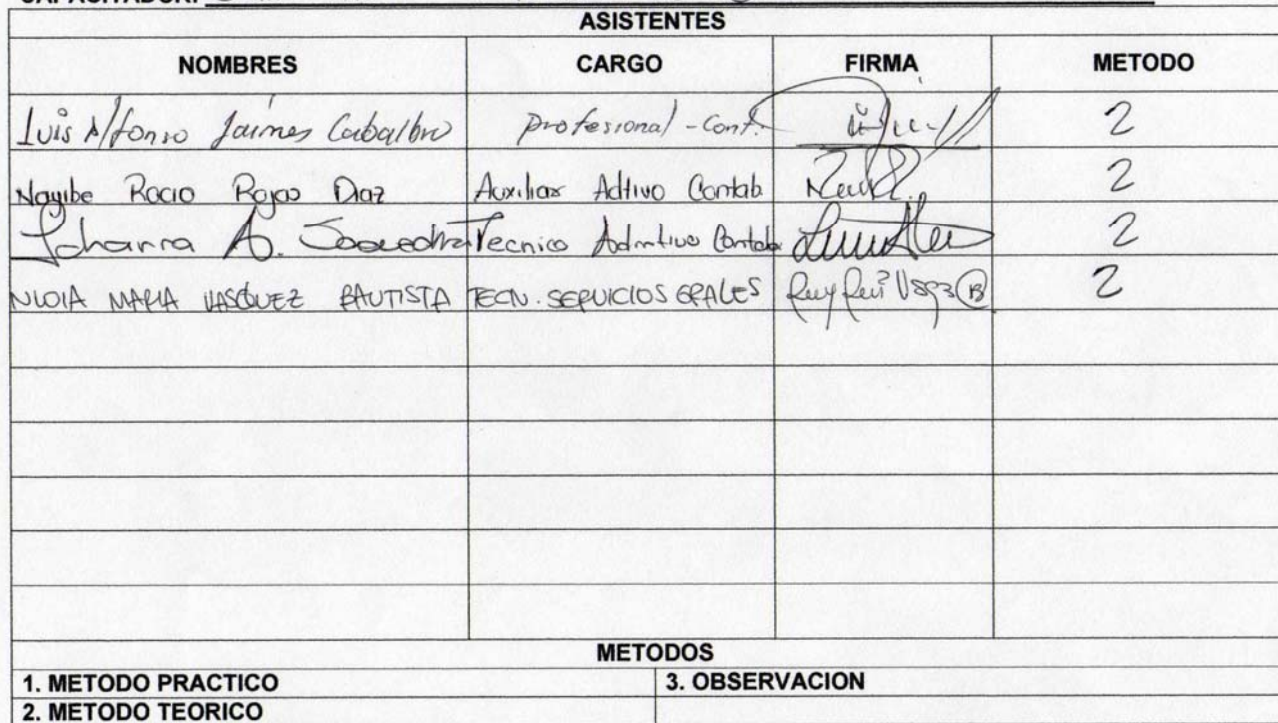 CAPACITADOR:
ASISTENTES
NOMBRES CARGO FIRMA METODO
Luis Alfonso Jaimes Caballero profesional - Cont. 2
Nayibe Rocio Rojas Diaz Auxiliar Adtivo Contab 2
Johanna A. Saavedra Tecnico Admtivo Contab 2
NIDIA MARIA VASQUEZ BAUTISTA TECN. SERVICIOS GRALES 2
METODOS
1. METODO PRACTICO 3. OBSERVACION
2. METODO TEORICO